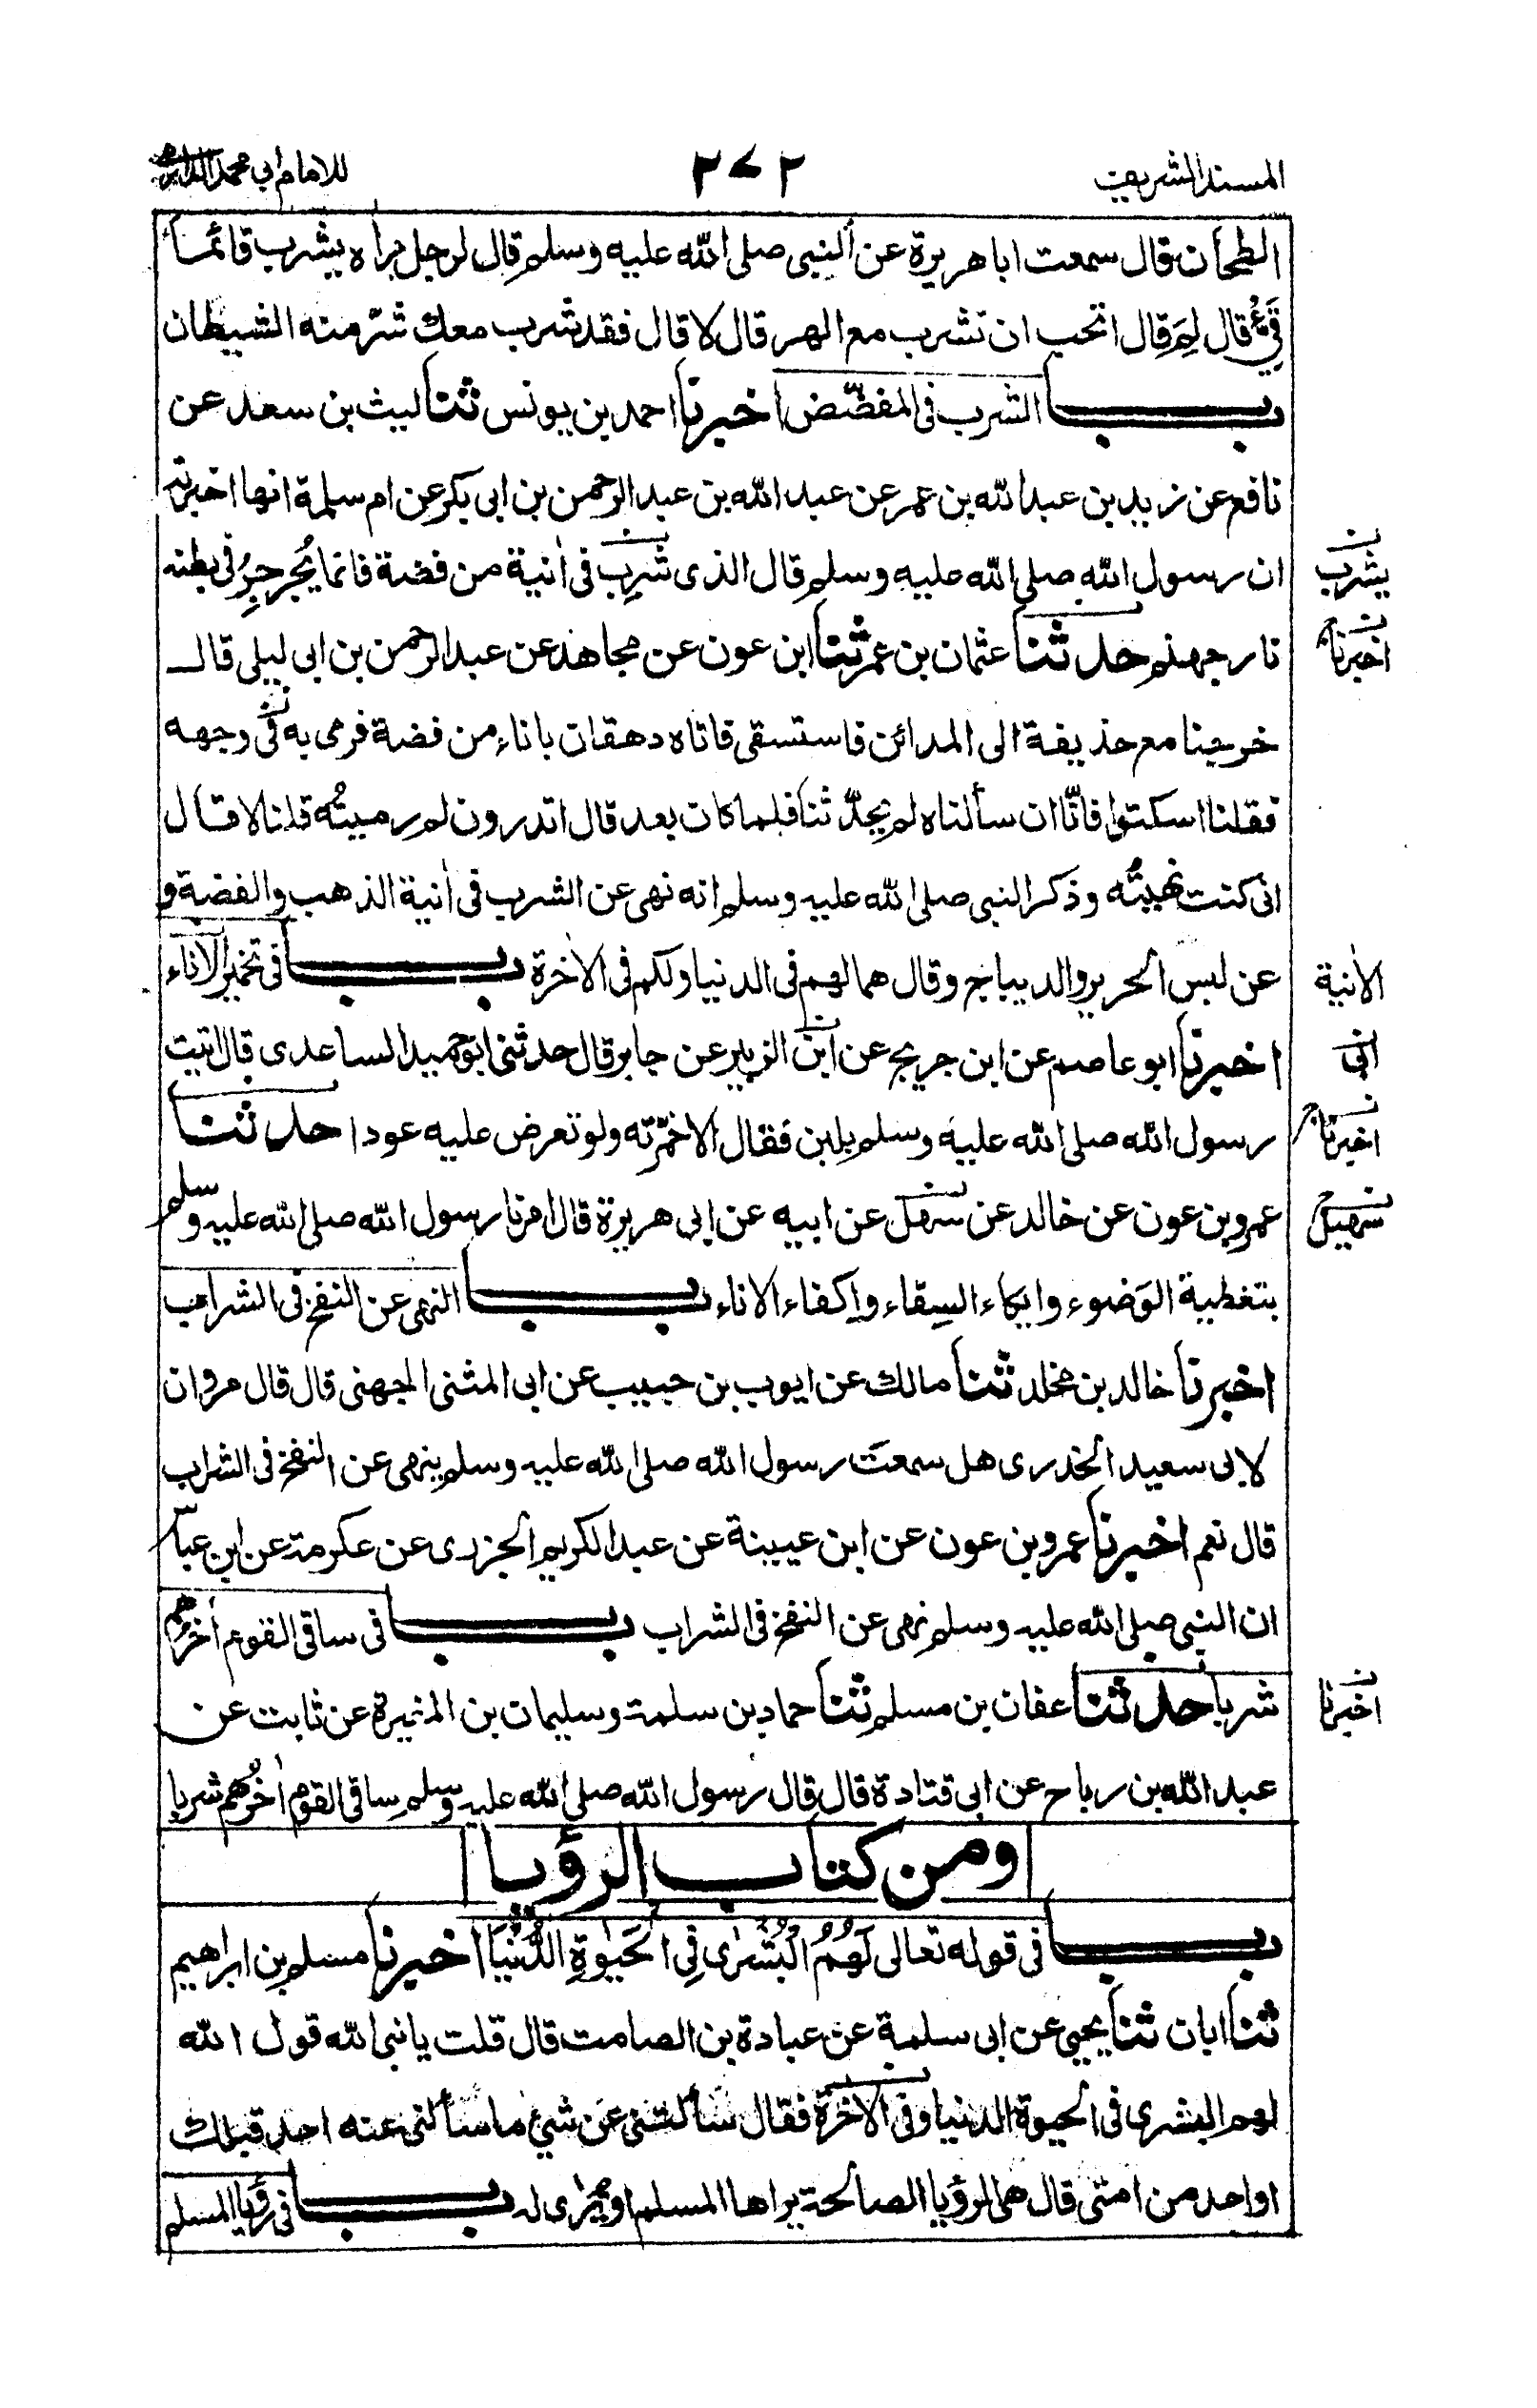 المسند الشريف
٢٧٢
للامام ابي محمد الدارمي
الطحان قال سمعت ابا هريرة عن النبي صلى الله عليه وسلم قال لرجل يراه يشرب قائما
قِئْ قال لِمَ قال اتحب ان تشرب مع الهر قال لا قال فقد شرب معك شرّ منه الشيطان
باب الشرب في المفضّض اخبرنا احمد بن يونس ثنا ليث بن سعد عن
نافع عن زيد بن عبد الله بن عمر عن عبد الله بن عبد الرحمن بن ابى بكر عن ام سلمة انها اخبرته
ان رسول الله صلى الله عليه وسلم قال الذى شَرِب فى اٰنية من فضة فانما يُجرجِرُ فى بطنه
يشرب
نار جهنم حدثنا عثمان بن عمر ثنا ابن عون عن مجاهد عن عبد الرحمن بن ابى ليلى قال
اخبرنا
خرجنا مع حذيفة الى المدائن فاستسقى فاتاه دهقان باناء من فضة فرمى به فى وجهه
فقلنا اسكتوا فانّا ان سألناه لم يحدّثنا فلما كان بعد قال اتدرون لم رميتُه قلنا لا قال
انى كنت نهيتُه وذكر النبى صلى الله عليه وسلم انه نهى عن الشرب فى اٰنية الذهب والفضة و
عن لبس الحرير والديباج وقال هما لهم فى الدنيا ولكم فى الاٰخرة باب فى تخمير الاناء
الاٰنية
اخبرنا ابو عاصم عن ابن جريج عن ابن الزبير عن جابر قال حدثنى ابو حميد الساعدى قال اتيت
ابى
رسول الله صلى الله عليه وسلم بلبن فقال الا خمّرته ولو تعرض عليه عودا حدثنا
اخبرنا
عمرو بن عون عن خالد عن سهل عن ابيه عن ابى هريرة قال امرنا رسول الله صلى الله عليه وسلم
سهيل
بتغطية الوَضوء وايكاء السِقاء واِكفاء الاناء باب النهى عن النفخ فى الشراب
اخبرنا خالد بن مخلد ثنا مالك عن ايوب بن حبيب عن ابى المثنى الجهنى قال قال مروان
لابى سعيد الخدرى هل سمعتَ رسول الله صلى الله عليه وسلم ينهى عن النفخ فى الشراب
قال نعم اخبرنا عمرو بن عون عن ابن عيينة عن عبد الكريم الجزرى عن عكرمة عن ابن عباس
ان النبى صلى الله عليه وسلم نهى عن النفخ فى الشراب باب فى ساقى القوم اٰخرهم
شربا حدثنا عفان بن مسلم ثنا حماد بن سلمة وسليمان بن المغيرة عن ثابت عن
اخبرنا
عبد الله بن رباح عن ابى قتادة قال قال رسول الله صلى الله عليه وسلم ساقى القوم اٰخرُهم شربا
ومن كتاب الرؤيا
باب فى قوله تعالى لَهُمُ الْبُشْرٰى فِى الْحَيٰوةِ الدُّنْيَا اخبرنا مسلم بن ابراهيم
ثنا ابان ثنا يحيى عن ابى سلمة عن عبادة بن الصامت قال قلت يا نبى الله قول الله
لهم البشرى فى الحيوة الدنيا وفى الاٰخرة فقال سَألتَنى عَن شئ ما سألنى عنه احد قبلك
او احد من امتى قال هى الرؤيا الصالحة يراها المسلم او يُرٰى له باب فى رؤيا المسلم